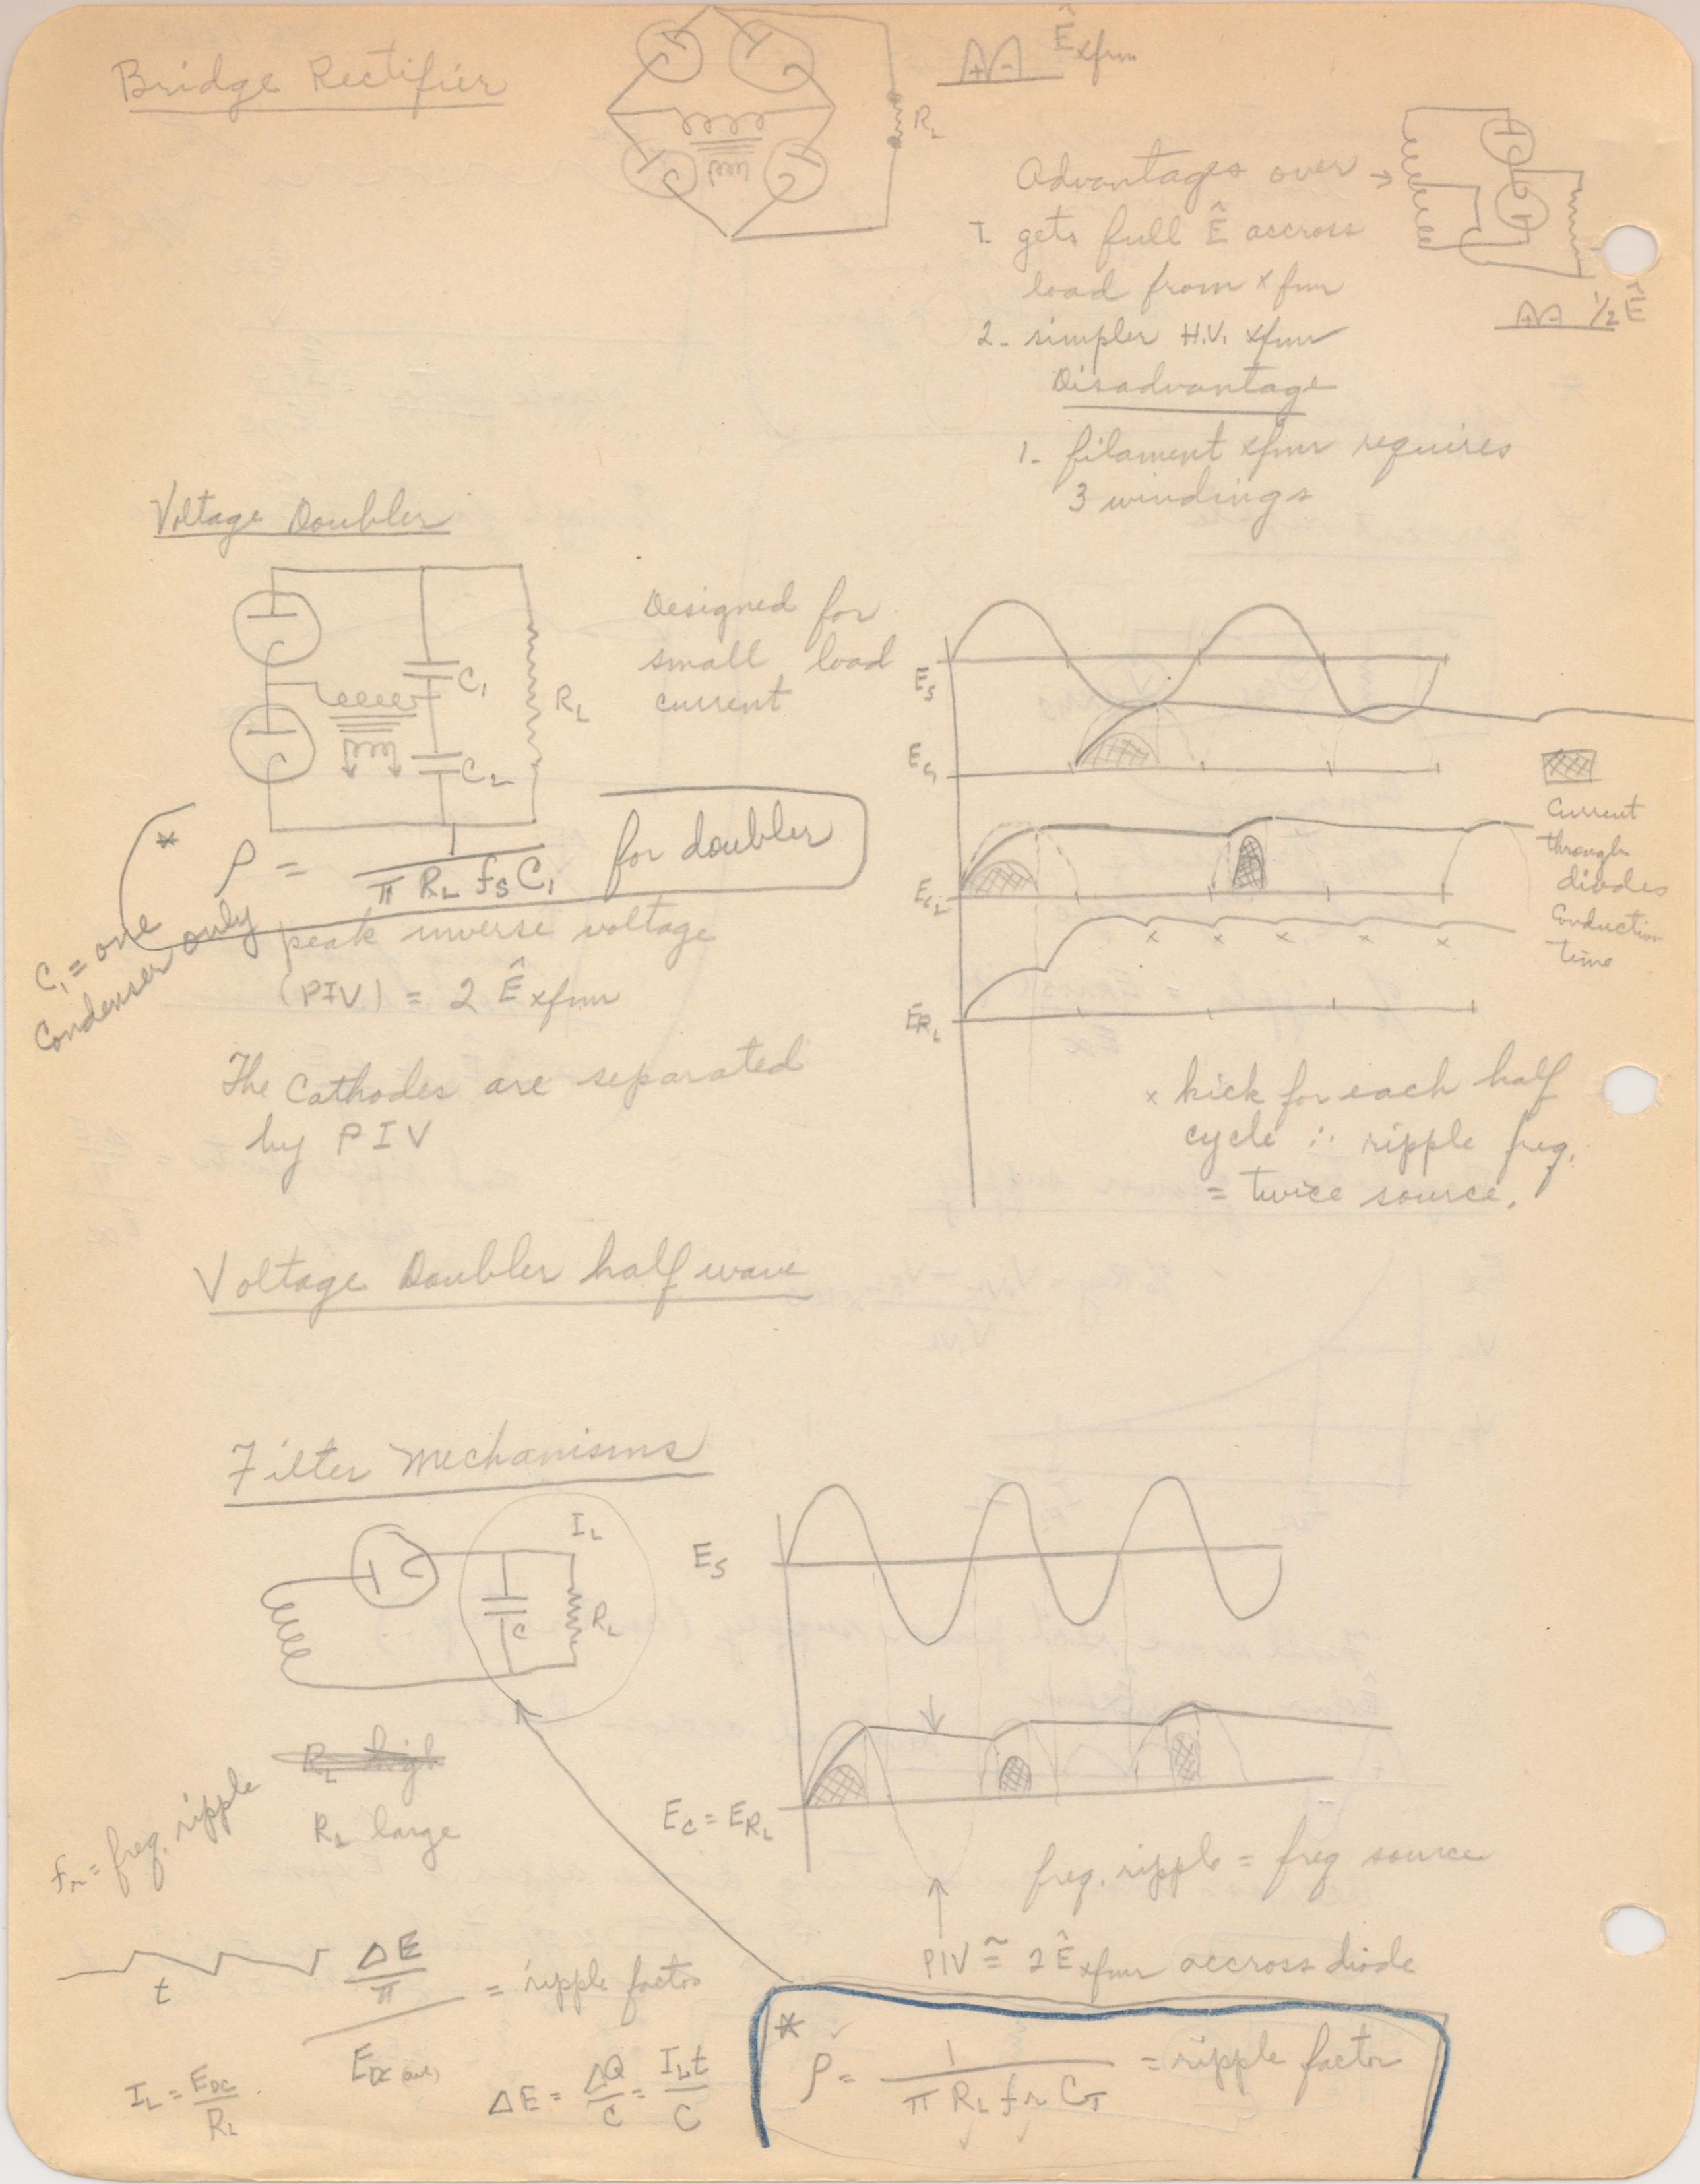 Bridge Rectifier
Ê xfmr
+ -
R_L
Advantages over →
1. gets full Ê accross
load from xfmr
+ - 1/2 Ê
2- simpler H.V. xfmr
Disadvantage
1- filament xfmr requires
3 windings
Voltage Doubler
C_1
R_L
C_2
Designed for
small load
current
E_S
E_C1
E_C2
E_RL
Current
through
diodes
Conduction
time
x x x x x
* ρ = 1 / π R_L f_S C_1 for doubler
C_1 = one
Condenser only
peak inverse voltage
(PIV) = 2 Ê xfmr
The Cathodes are separated
by PIV
x kick for each half
cycle ∴ ripple freq.
= twice source.
Voltage Doubler half wave
Filter Mechanisms
I_L
C
R_L
E_S
R_L high
R_L large
f_r = freq. ripple
E_C = E_RL
freq. ripple = freq source
PIV ≅ 2 Ê xfmr accross diode
t
ΔE/π / E_DC (ave) = ripple factor
I_L = E_DC / R_L
ΔE = ΔQ/C = I_L t / C
* ρ = 1 / π R_L f_r C_T = ripple factor